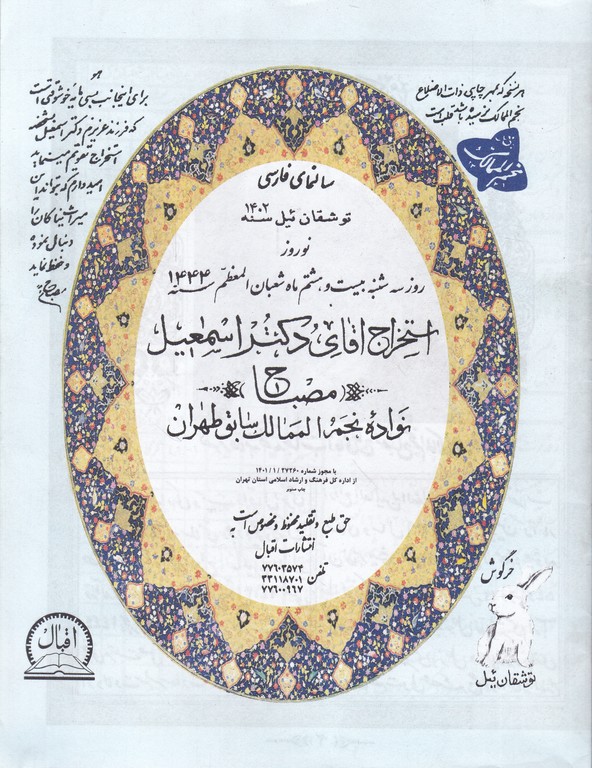 هرنسخه که مهر چاپی ذات الاضلاع
نجم الممالک نرسیده باشد قلب است
نجم الممالک
هو
برای اینجانب بسی مایه خوشوقتی است
که فرزند عزیزم دکتر اسمعیل
استخراج تقویم مینماید
امیدوارم که بتواند این
میراث نیاکان را
دنبال نموده
و حفظ نماید
مصباح
سالنمای فارسی
توشقان ئیل سنه ۱۴۰۲
نوروز
روز سه شنبه بیست و هشتم ماه شعبان المعظم سنه ۱۴۴۴
استخراج اقای دکتر اسمعیل
مصباح
نوادهٔ نجم الممالک سابق طهران
با مجوز شماره ۴۷۲۶۰ / ۱ / ۱۴۰۱
از اداره کل فرهنگ و ارشاد اسلامی استان تهران
چاپ منوبر
حق طبع و تقلید محفوظ و مخصوص است به
انتشارات اقبال
تلفن
۷۷۶۰۳۵۷۴
۳۳۱۱۸۷۰۱
۷۷۶۰۰۹۶۷
اقبال
خرگوش
توشقان ئیل